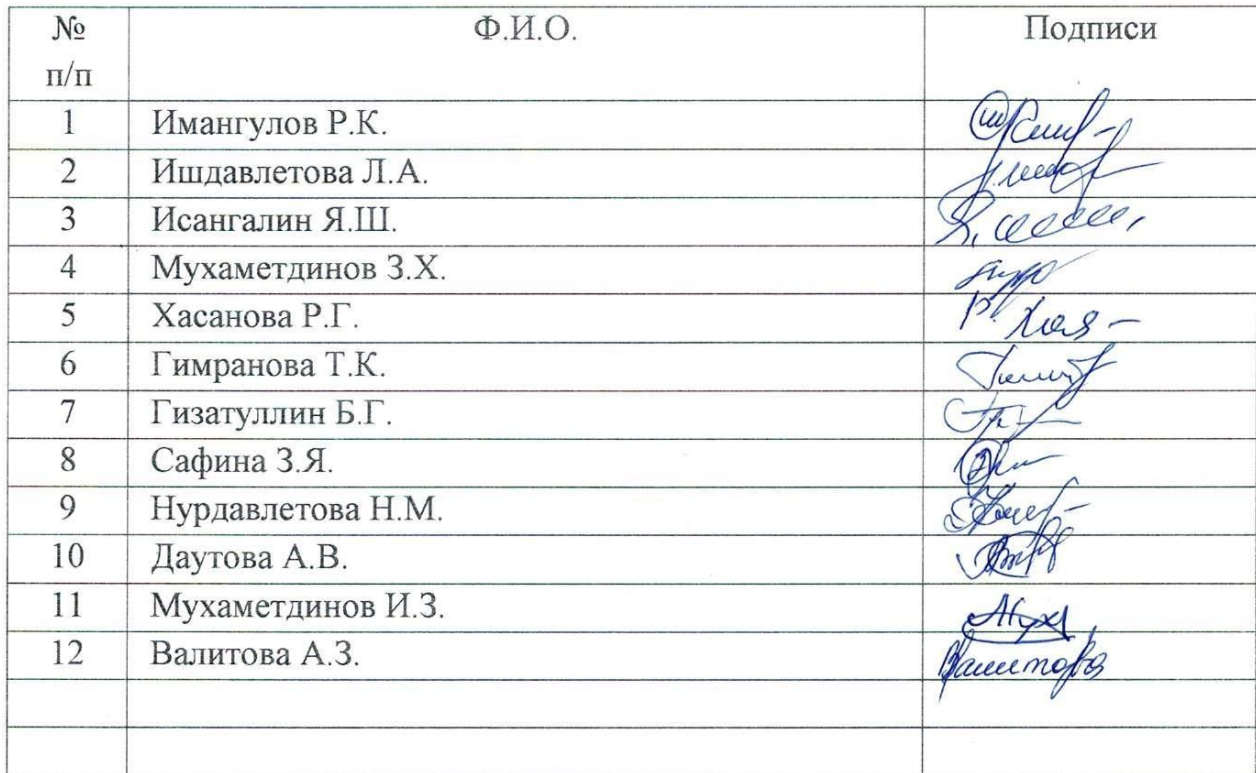 № п/п Ф.И.О. Подписи
1 Имангулов Р.К.
2 Ишдавлетова Л.А.
3 Исангалин Я.Ш.
4 Мухаметдинов З.Х.
5 Хасанова Р.Г.
6 Гимранова Т.К.
7 Гизатуллин Б.Г.
8 Сафина З.Я.
9 Нурдавлетова Н.М.
10 Даутова А.В.
11 Мухаметдинов И.З.
12 Валитова А.З.